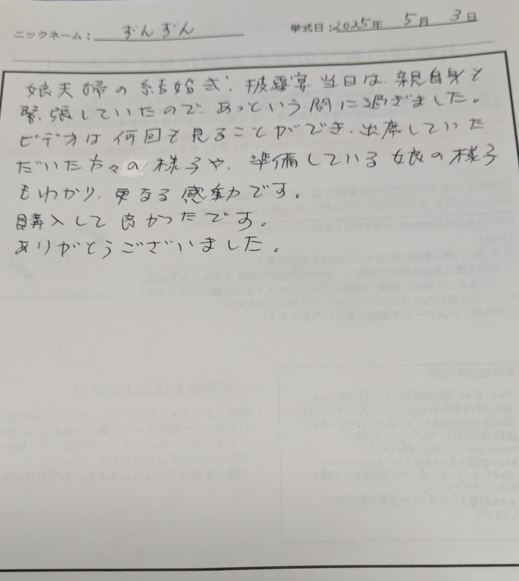 ニックネーム: ずんずん 挙式日: 2025年 5月 3日
娘夫婦の結婚式、披露宴当日は、親自身も
緊張していたので、あっという間に過ぎました。
ビデオは何回も見ることができ、出席していた
だいた方々の様子や、準備している娘の様子
もわかり、更なる感動です。
購入して良かったです。
ありがとうございました。